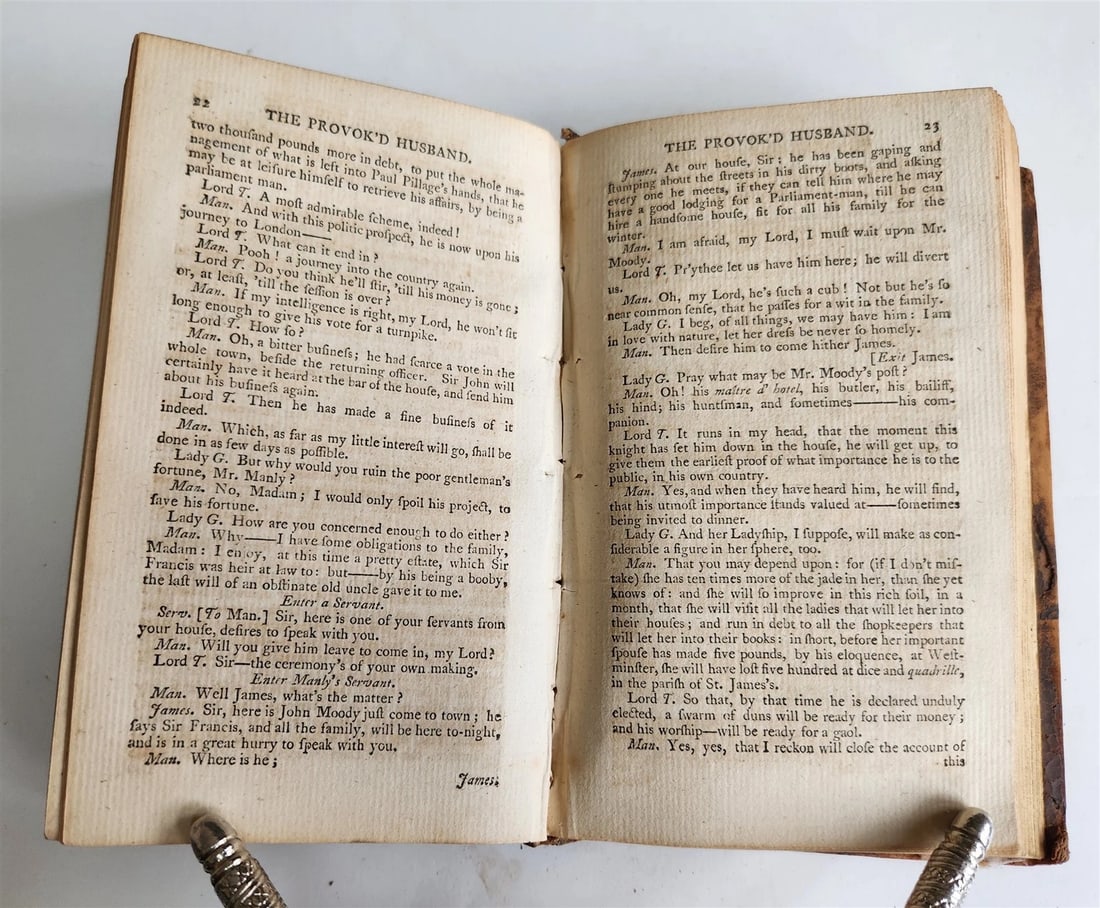 22
THE PROVOK'D HUSBAND.
two thouſand pounds more in debt, to put the whole ma-
nagement of what is left into Paul Pillage's hands, that he
may be at leiſure himſelf to retrieve his affairs, by being a
parliament man.
Lord T. A moſt admirable ſcheme, indeed!
Man. And with this politic proſpect, he is now upon his
journey to London——
Lord T. What can it end in?
Man. Pooh! a journey into the country again.
Lord T. Do you think he'll ſtir, 'till his money is gone;
or, at leaſt, 'till the ſeſſion is over?
Man. If my intelligence is right, my Lord, he won't ſit
long enough to give his vote for a turnpike.
Lord T. How ſo?
Man. Oh, a bitter buſineſs; he had ſcarce a vote in the
whole town, beſide the returning officer. Sir John will
certainly have it heard at the bar of the houſe, and ſend him
about his buſineſs again.
Lord T. Then he has made a fine buſineſs of it
indeed.
Man. Which, as far as my little intereſt will go, ſhall be
done in as few days as poſſible.
Lady G. But why would you ruin the poor gentleman's
fortune, Mr. Manly?
Man. No, Madam; I would only ſpoil his project, to
ſave his fortune.
Lady G. How are you concerned enough to do either?
Man. Why——I have ſome obligations to the family,
Madam: I enjoy, at this time a pretty eſtate, which Sir
Francis was heir at law to: but——by his being a booby,
the laſt will of an obſtinate old uncle gave it to me.
Enter a Servant.
Serv. [To Man.] Sir, here is one of your ſervants from
your houſe, deſires to ſpeak with you.
Man. Will you give him leave to come in, my Lord?
Lord T. Sir—the ceremony's of your own making.
Enter Manly's Servant.
Man. Well James, what's the matter?
James. Sir, here is John Moody juſt come to town; he
ſays Sir Francis, and all the family, will be here to-night,
and is in a great hurry to ſpeak with you.
Man. Where is he;
James.
THE PROVOK'D HUSBAND.
23
James. At our houſe, Sir: he has been gaping and
ſtumping about the ſtreets in his dirty boots, and aſking
every one he meets, if they can tell him where he may
have a good lodging for a Parliament-man, till he can
hire a handſome houſe, fit for all his family for the
winter.
Man. I am afraid, my Lord, I muſt wait upon Mr.
Moody.
Lord T. Pr'ythee let us have him here; he will divert
us.
Man. Oh, my Lord, he's ſuch a cub! Not but he's ſo
near common ſenſe, that he paſſes for a wit in the family.
Lady G. I beg, of all things, we may have him: I am
in love with nature, let her dreſs be never ſo homely.
Man. Then deſire him to come hither James.
[Exit James.
Lady G. Pray what may be Mr. Moody's poſt?
Man. Oh! his maître d' hotel, his butler, his bailiff,
his hind; his huntſman, and ſometimes———his com-
panion.
Lord T. It runs in my head, that the moment this
knight has ſet him down in the houſe, he will get up, to
give them the earlieſt proof of what importance he is to the
public, in his own country.
Man. Yes, and when they have heard him, he will find,
that his utmoſt importance ſtands valued at——ſometimes
being invited to dinner.
Lady G. And her Ladyſhip, I ſuppoſe, will make as con-
ſiderable a figure in her ſphere, too.
Man. That you may depend upon: for (if I don't miſ-
take) ſhe has ten times more of the jade in her, than ſhe yet
knows of: and ſhe will ſo improve in this rich ſoil, in a
month, that ſhe will viſit all the ladies that will let her into
their houſes; and run in debt to all the ſhopkeepers that
will let her into their books: in ſhort, before her important
ſpouſe has made five pounds, by his eloquence, at Weſt-
minſter, ſhe will have loſt five hundred at dice and quadrille,
in the pariſh of St. James's.
Lord T. So that, by that time he is declared unduly
elected, a ſwarm of duns will be ready for their money;
and his worſhip—will be ready for a gaol.
Man. Yes, yes, that I reckon will cloſe the account of
this